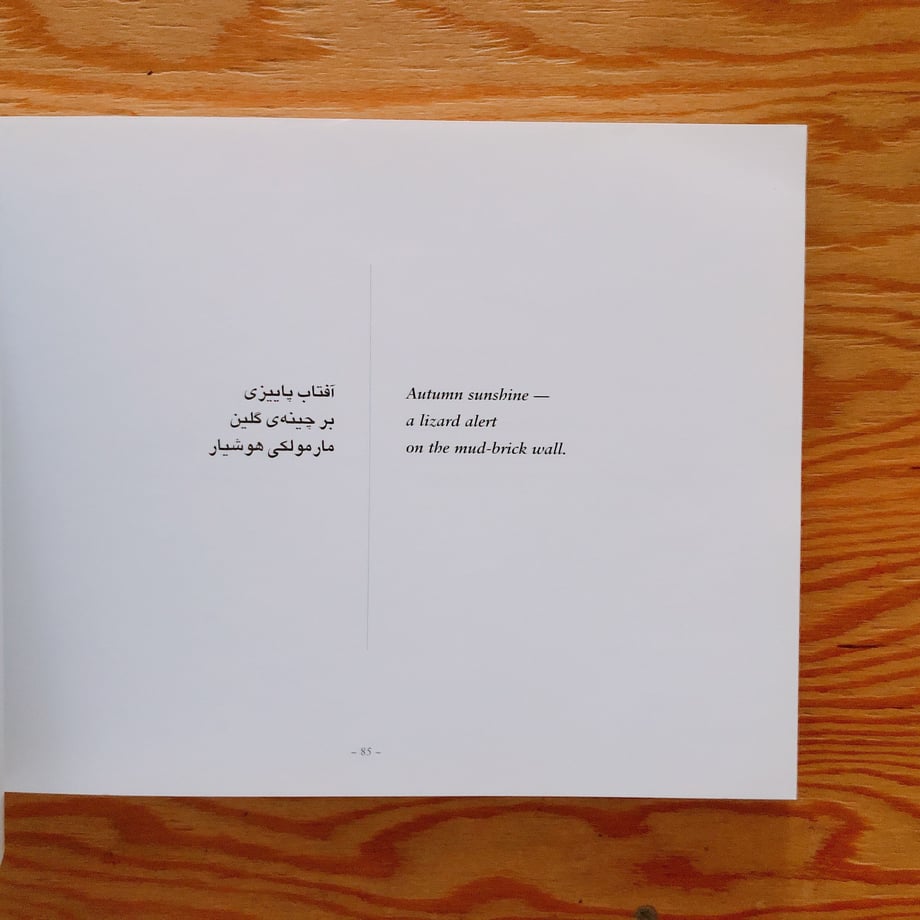 آفتاب پاییزی
بر چینه‌ی گلین
مارمولکی هوشیار
Autumn sunshine —
a lizard alert
on the mud-brick wall.
– 85 –